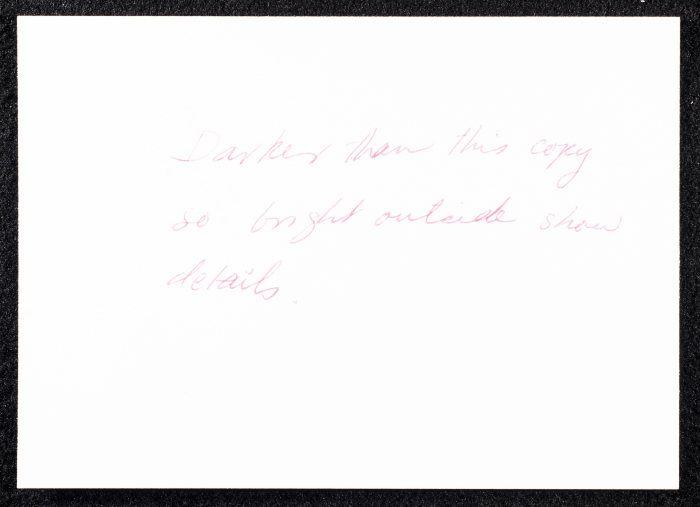 Darker than this copy
so bright outside show
details.